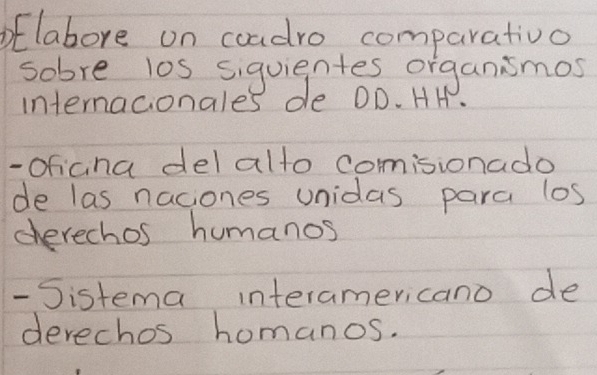 Elabore un coadro comparativo
sobre los siguientes organismos
internacionales de DD.HH.
-oficina del alto comisionado
de las naciones unidas para los
derechos humanos
-Sistema interamericano de
derechos homanos.